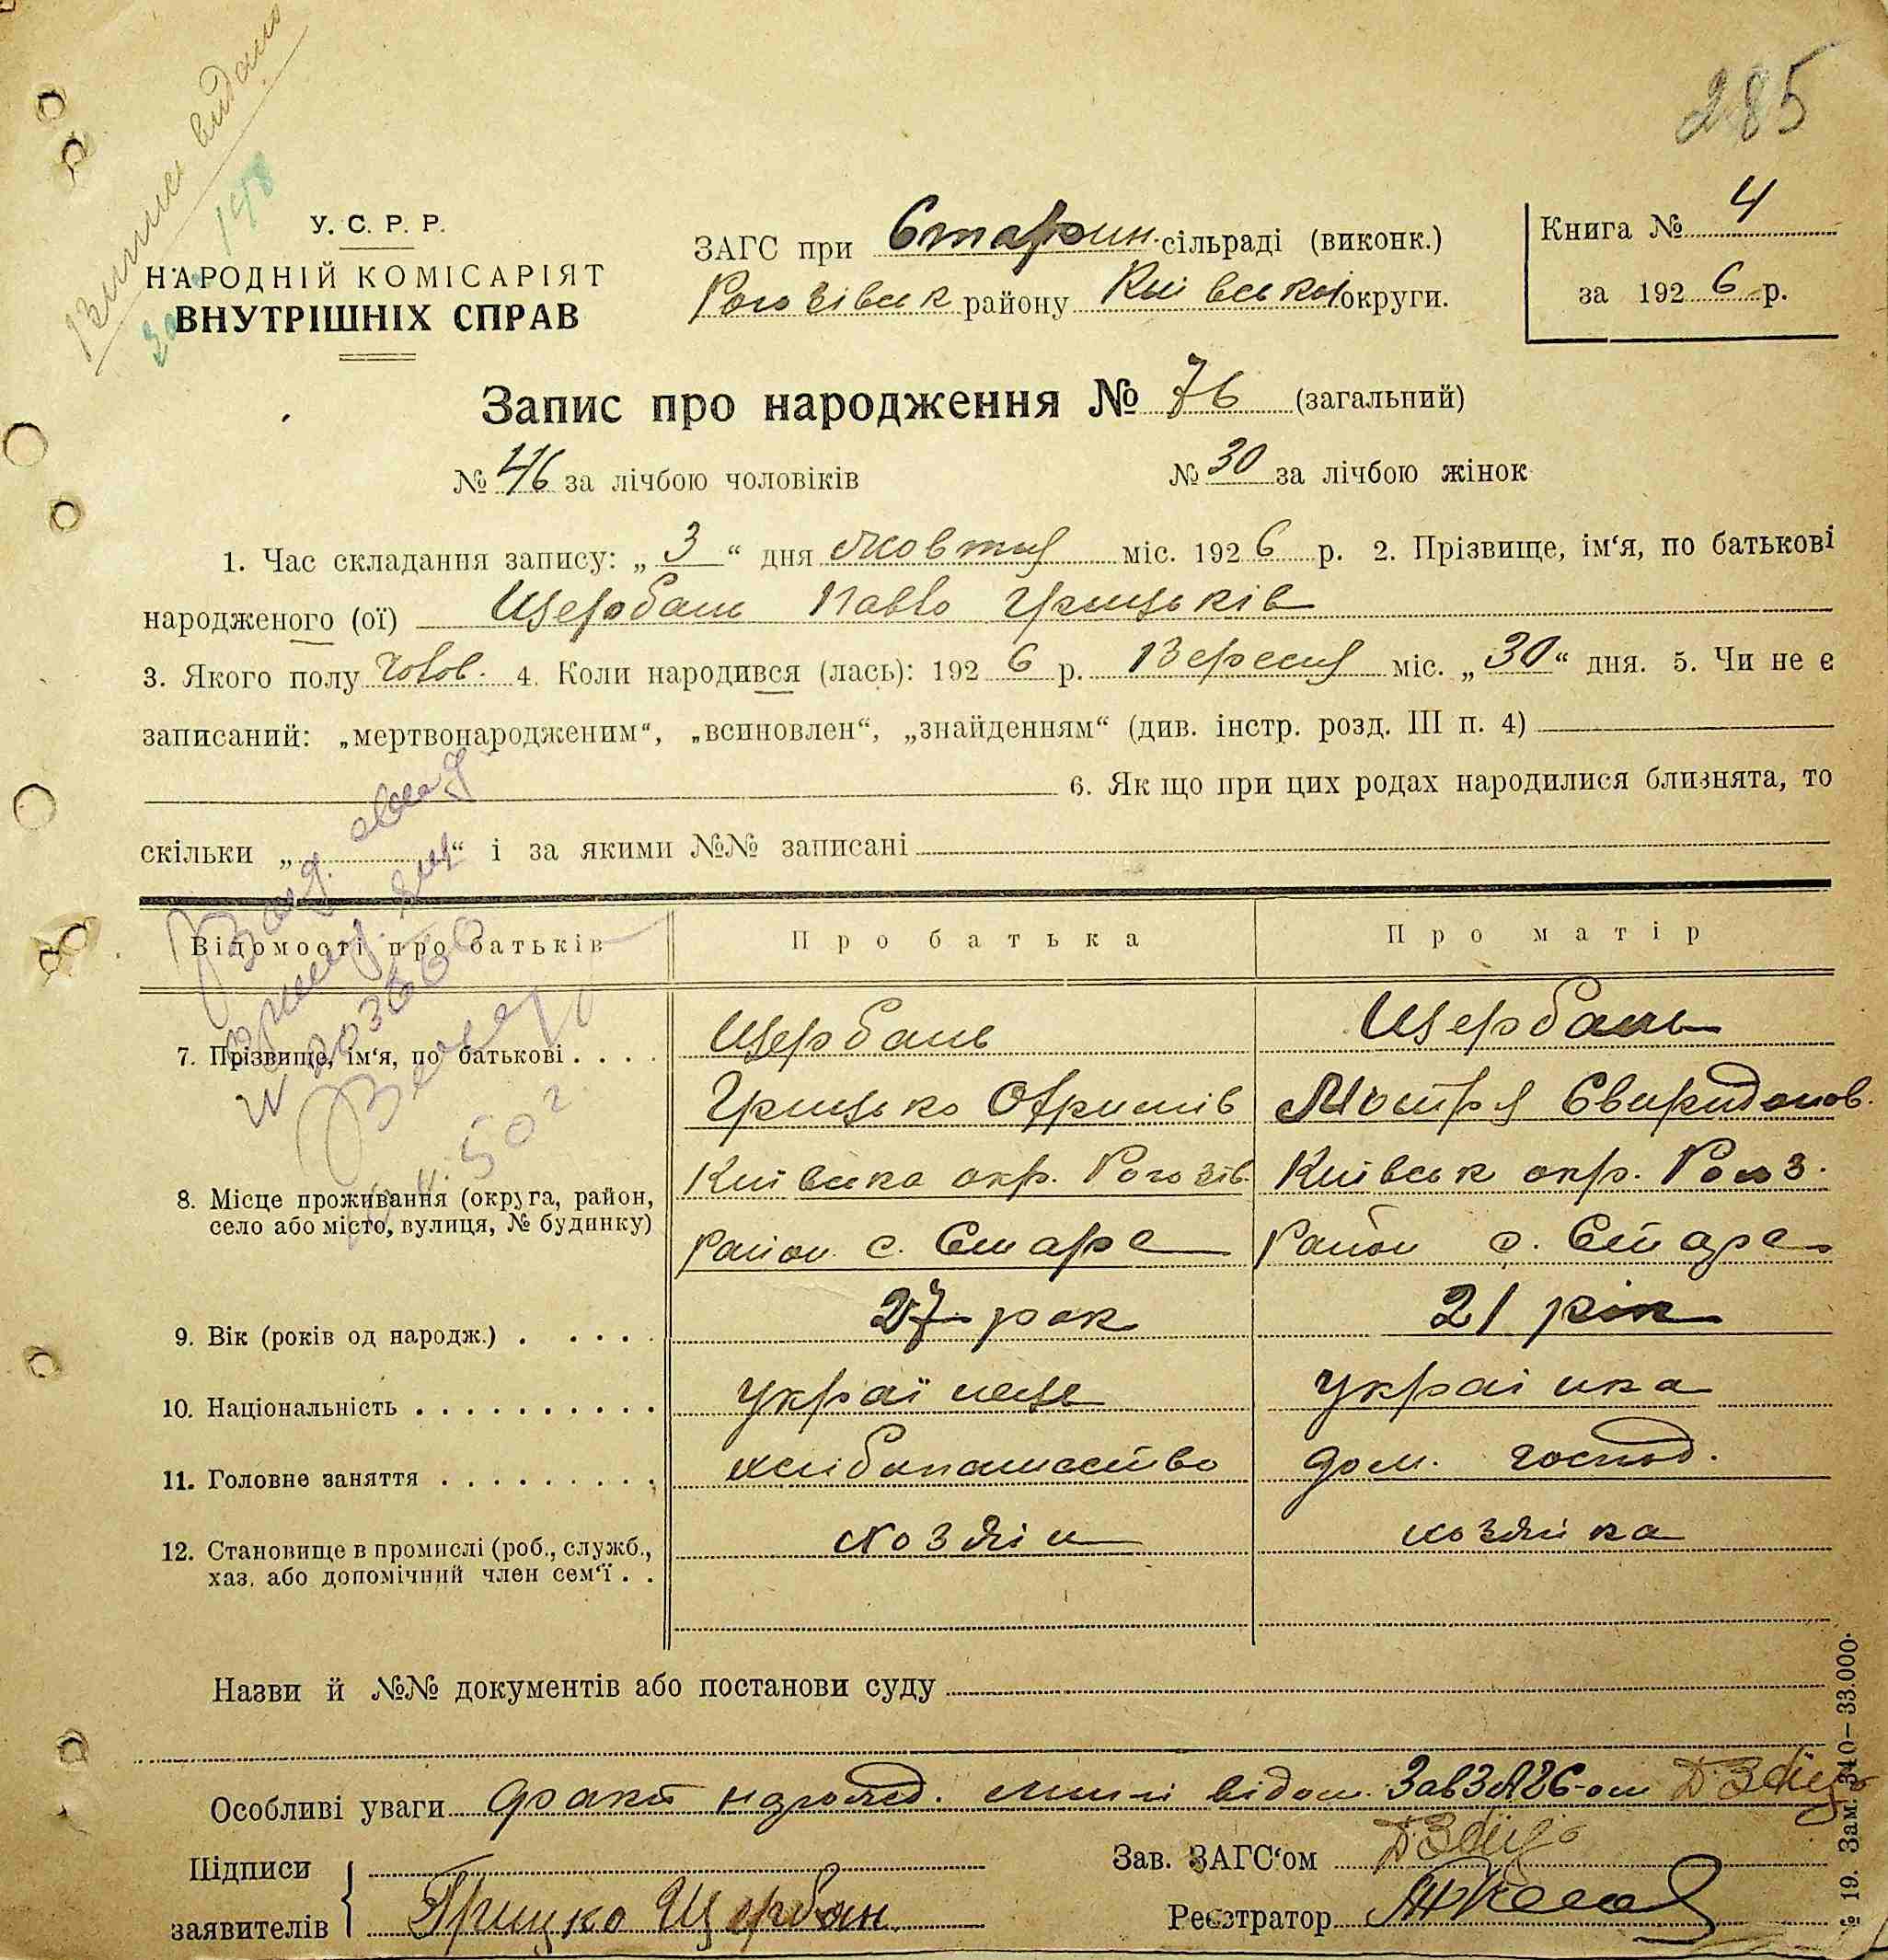 Виписи видано
148
285
У. С. Р. Р.
НАРОДНІЙ КОМІСАРІЯТ
ВНУТРІШНІХ СПРАВ
ЗАГС при Старин. сільраді (виконк.)
Рогозівськ району Київської округи.
Книга № 4
за 1926 р.
Запис про народження № 76 (загальний)
№ 46 за лічбою чоловіків № 30 за лічбою жінок
1. Час складання запису: „ 3 “ дня жовтня міс. 1926 р. 2. Прізвище, ім‘я, по батькові
народженого (ої) Щербань Павло Грицьків
3. Якого полу чолов. 4. Коли народився (лась): 1926 р. Вересня міс. „30“ дня. 5. Чи не є
записаний: „мертвонародженим“, „всиновлен“, „знайденням“ (див. інстр. розд. III п. 4)
6. Як що при цих родах народилися близнята, то
скільки „ “ і за якими №№ записані
Відомості про батьків Про батька Про матір
7. Прізвище, ім‘я, по батькові . . . . Щербань Щербань
Грицько Охримів Мотря Свиридонов.
8. Місце проживання (округа, район, село або місто, вулиця, № будинку) Київська окр. Рогозів. Київськ окр. Рогоз.
Район с. Старе Район с. Старе
9. Вік (років од народж.) . . . . . 27 рок 21 рік
10. Національність . . . . . . . . . . Українець Українка
11. Головне заняття . . . . . . . . . хлібопашество дом. господ.
12. Становище в промислі (роб., служб., хаз. або допомічний член сем‘ї . . хозяїн хозяйка
Назви й №№ документів або постанови суду
Особливі уваги факт народ. мині відом.
Підписи
заявителів Грицко Щербан
Зав. ЗАГС‘ом
Реєстратор
19. Зам. 340–33.000.